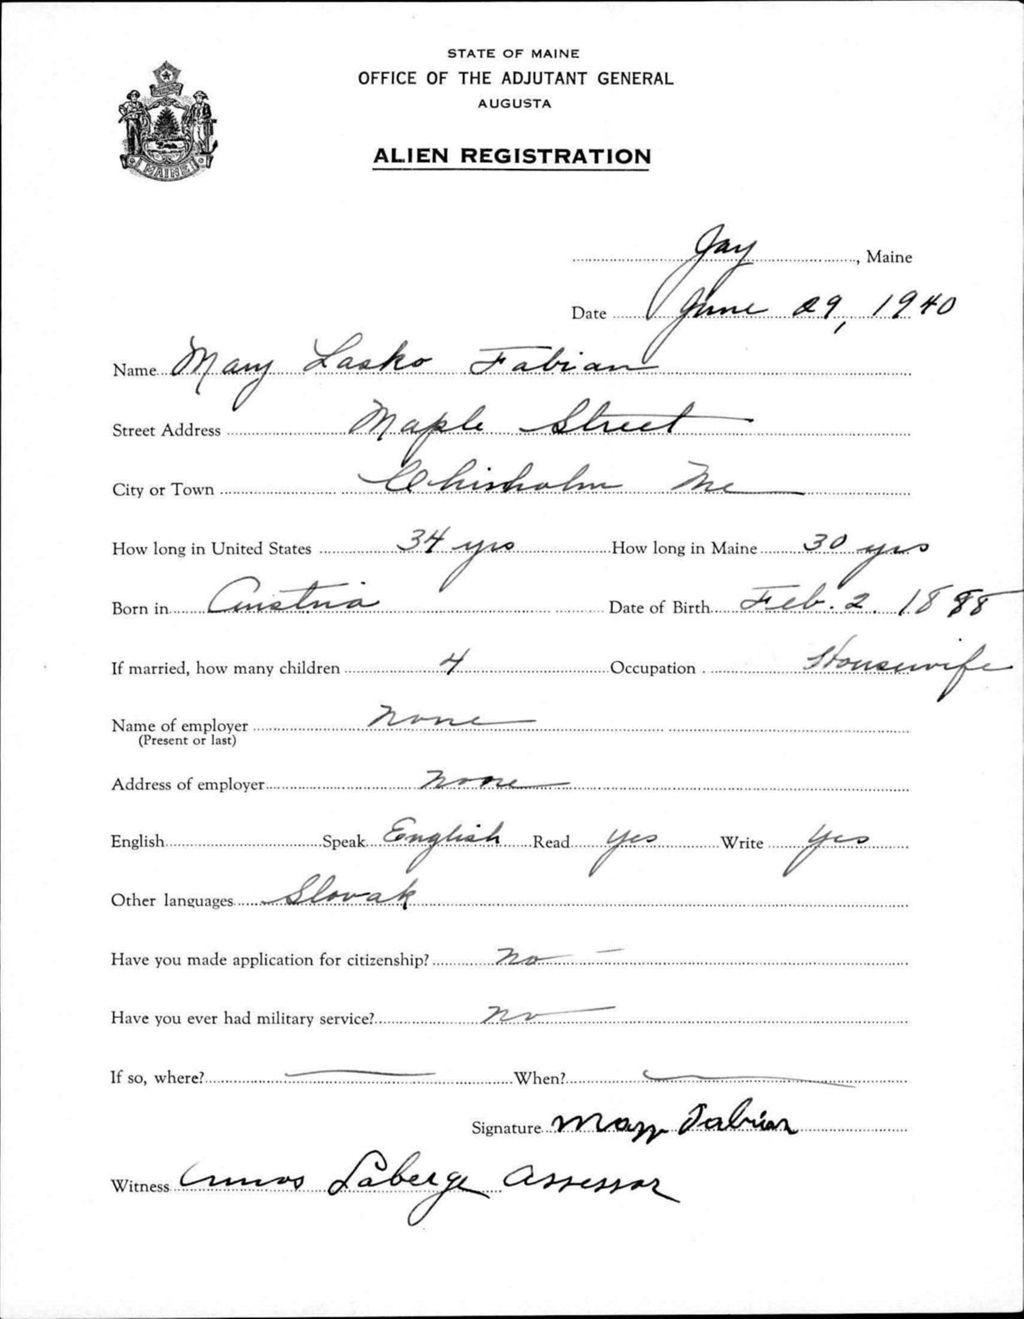 STATE OF MAINE
OFFICE OF THE ADJUTANT GENERAL
AUGUSTA
ALIEN REGISTRATION
MAINE
Jay, Maine
Date June 29, 1940
Name Mary Lasko Fabian
Street Address Maple Street
City or Town Chisholm Me
How long in United States 34 yrs How long in Maine 30 yrs
Born in Austria Date of Birth Feb. 2. 1888
If married, how many children 4 Occupation Housewife
Name of employer none
(Present or last)
Address of employer none
English Speak English Read yes Write yes
Other languages Slovak
Have you made application for citizenship? no –
Have you ever had military service? no
If so, where? — When? —
Signature Mary Fabian
Witness Laberge Assessor